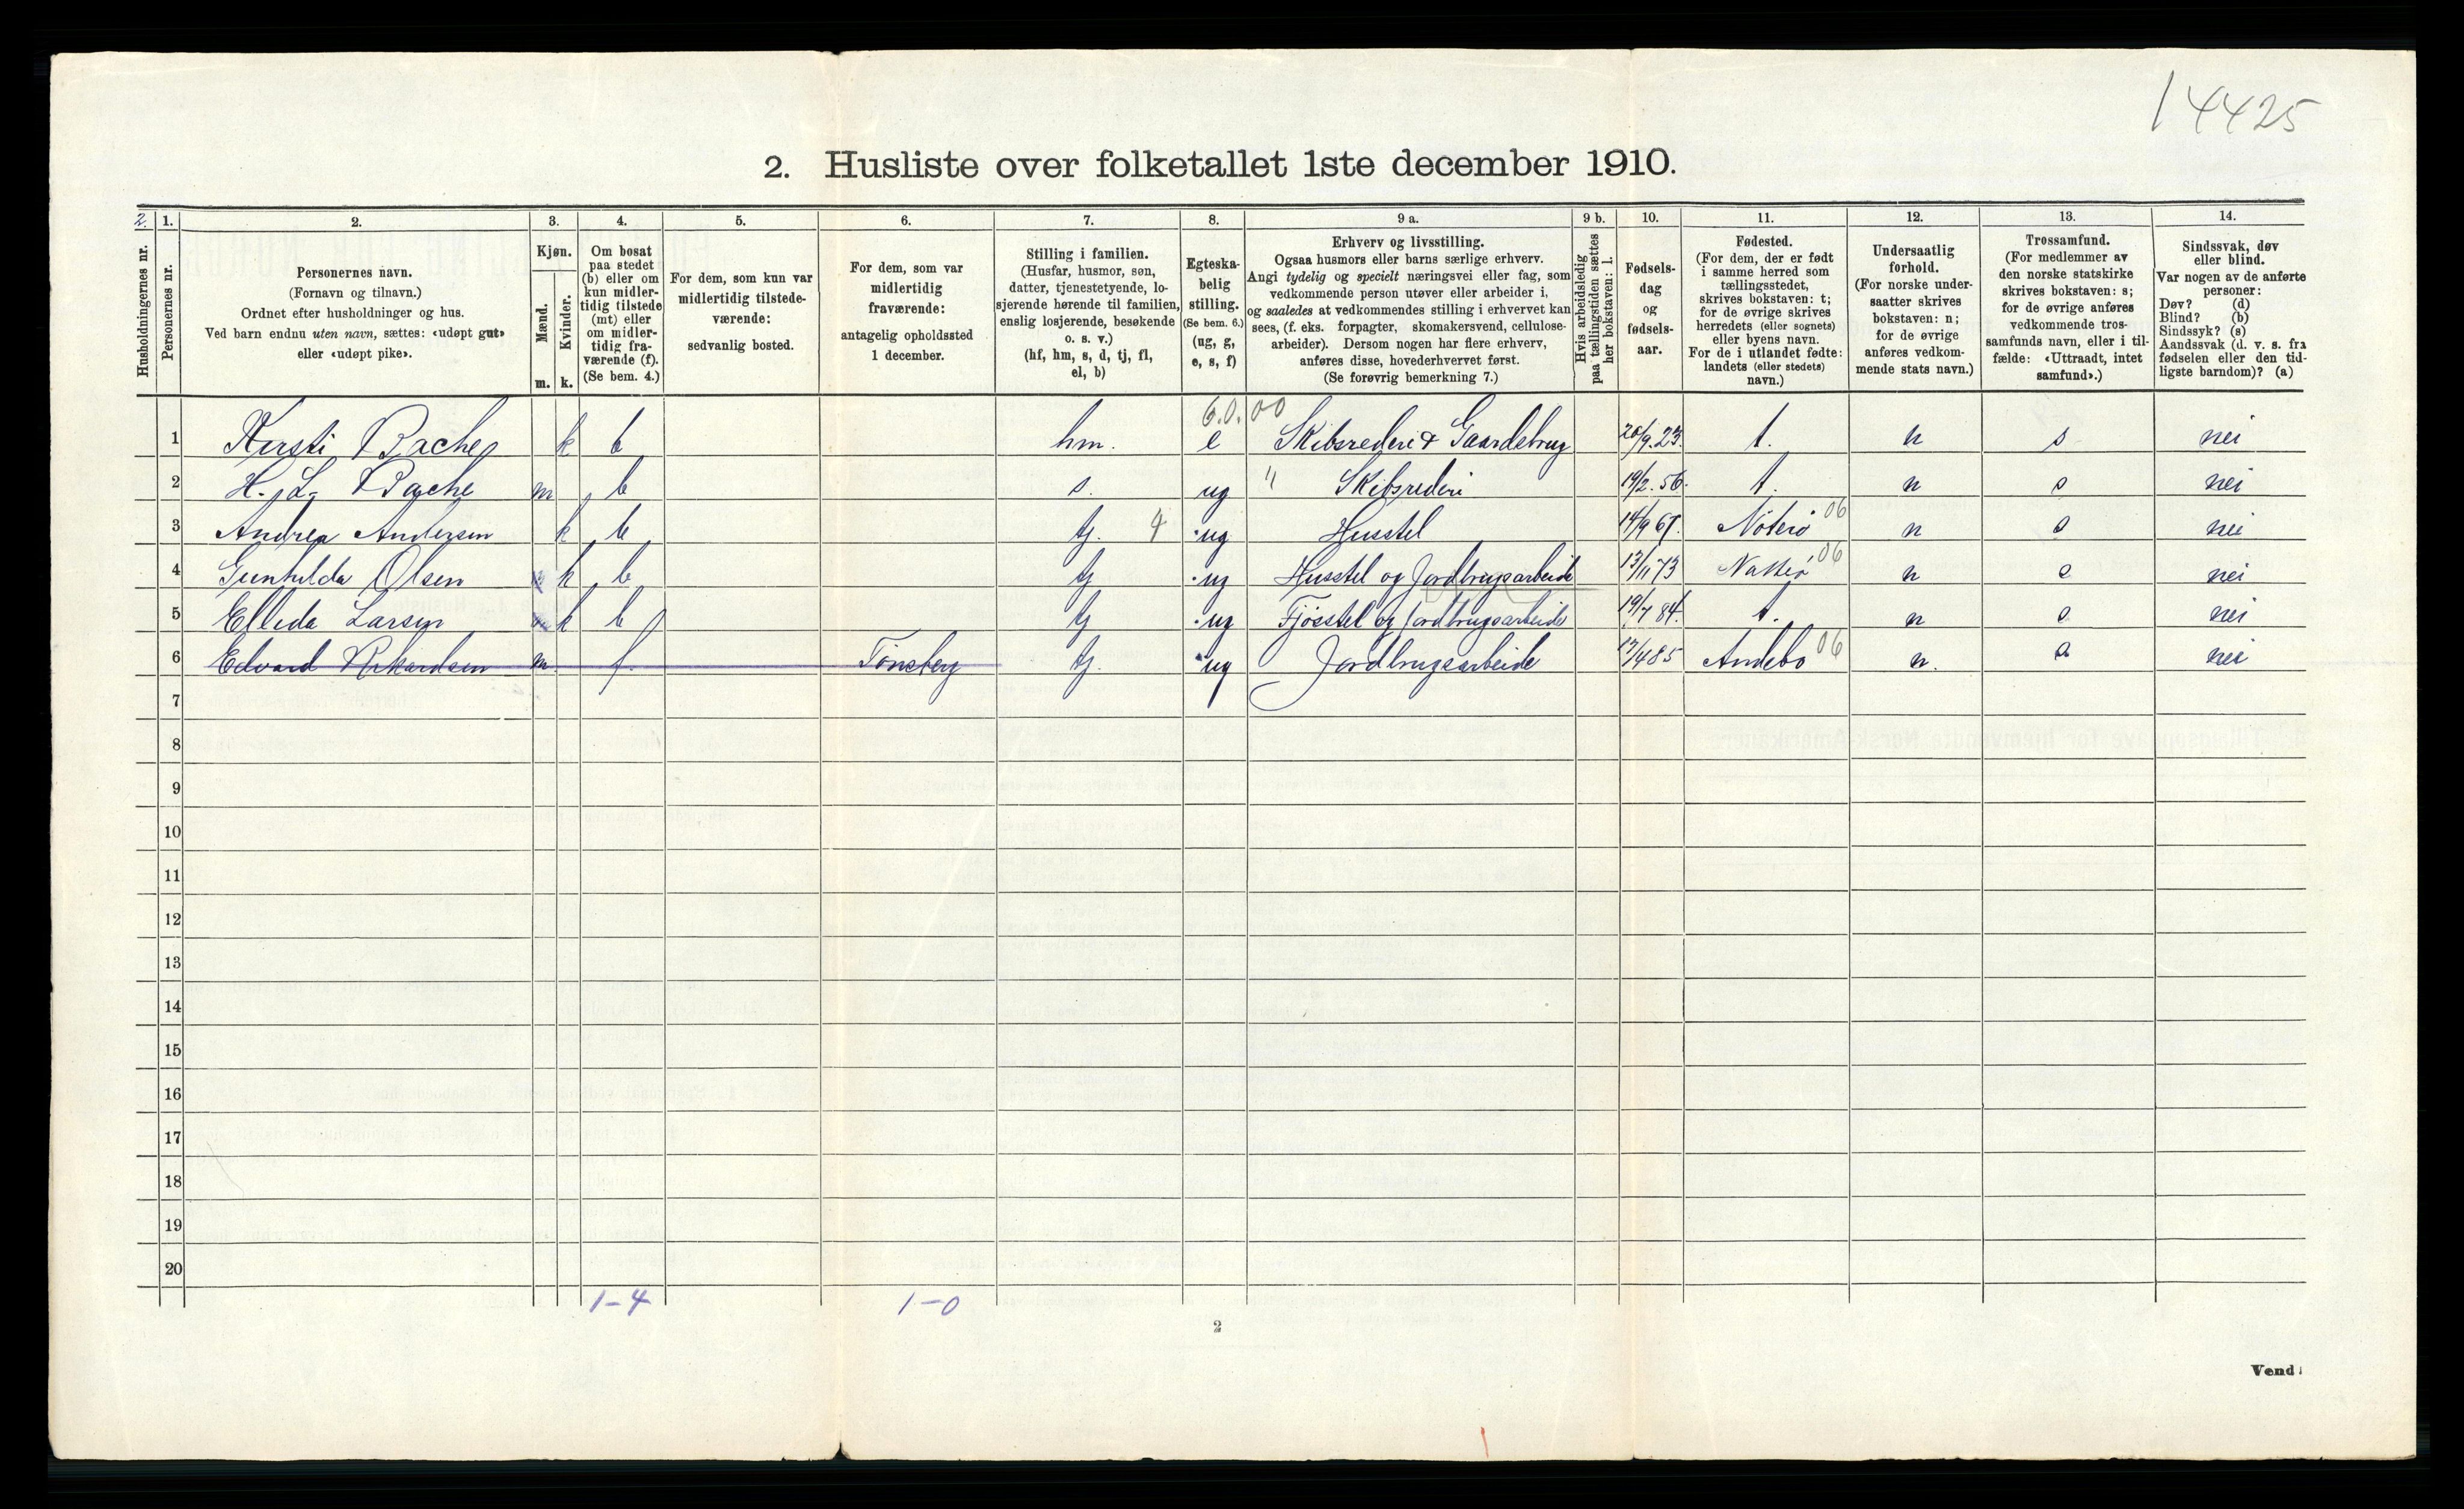 14425
2. Husliste over folketallet 1ste december 1910.
2. 1. 2. 3. 4. 5. 6. 7. 8. 9 a. 9 b. 10. 11. 12. 13. 14.
Husholdningernes nr.
Personernes nr.
Personernes navn.
(Fornavn og tilnavn.)
Ordnet efter husholdninger og hus.
Ved barn endnu uten navn, sættes: «udøpt gut»
eller «udøpt pike».
Kjøn.
Mænd.
Kvinder.
m. k.
Om bosat
paa stedet
(b) eller om
kun midler-
tidig tilstede
(mt) eller
om midler-
tidig fra-
værende (f).
(Se bem. 4.)
For dem, som kun var
midlertidig tilstede-
værende:
sedvanlig bosted.
For dem, som var
midlertidig
fraværende:
antagelig opholdssted
1 december.
Stilling i familien.
(Husfar, husmor, søn,
datter, tjenestetyende, lo-
sjerende hørende til familien,
enslig losjerende, besøkende
o. s. v.)
(hf, hm, s, d, tj, fl,
el, b)
Egteska-
belig
stilling.
(Se bem. 6.)
(ug, g,
e, s, f)
Erhverv og livsstilling.
Ogsaa husmors eller barns særlige erhverv.
Angi tydelig og specielt næringsvei eller fag, som
vedkommende person utøver eller arbeider i,
og saaledes at vedkommendes stilling i erhvervet kan
sees, (f. eks. forpagter, skomakersvend, cellulose-
arbeider). Dersom nogen har flere erhverv,
anføres disse, hovederhvervet først.
(Se forøvrig bemerkning 7.)
Hvis arbeidsledig
paa tællingstiden sættes
her bokstaven: l.
Fødsels-
dag
og
fødsels-
aar.
Fødested.
(For dem, der er født
i samme herred som
tællingsstedet,
skrives bokstaven: t;
for de øvrige skrives
herredets (eller sognets)
eller byens navn.
For de i utlandet fødte:
landets (eller stedets)
navn.)
Undersaatlig
forhold.
(For norske under-
saatter skrives
bokstaven: n;
for de øvrige
anføres vedkom-
mende stats navn.)
Trossamfund.
(For medlemmer av
den norske statskirke
skrives bokstaven: s;
for de øvrige anføres
vedkommende tros-
samfunds navn, eller i til-
fælde: «Uttraadt, intet
samfund».)
Sindssvak, døv
eller blind.
Var nogen av de anførte
personer:
Døv? (d)
Blind? (b)
Sindssyk? (s)
Aandssvak (d. v. s. fra
fødselen eller den tid-
ligste barndom)? (a)
6.0.00
1 Kirsti Bache k b hm. e Skibsrederi & Gaardsbrug 20/9.23. t. n s nei
2 H. L. Bache m b s. ug " Skibsrederi 19/2.56. t. n s nei
3 Andrea Andersen k b tj. 4 ug Husstel 14/9 67. Nøterø 06 n s nei
4 Gunhilda Olsen k b tj ug Husstel og Jordbrugsarbeide 13/11 73 06 n s nei
5 Elleda Larsen k b tj ug Fjøsstel og Jordbrugsarbeide 19/7 84. t. n s nei
6 Edvard Rikardsen m. f. Tønsberg tj. ug Jordbrugsarbeide 17/4 85 Andebo 06 n. s nei
7
8
9
10
11
12
13
14
15
16
17
18
19
20
1-4 1-0
2
Vend!